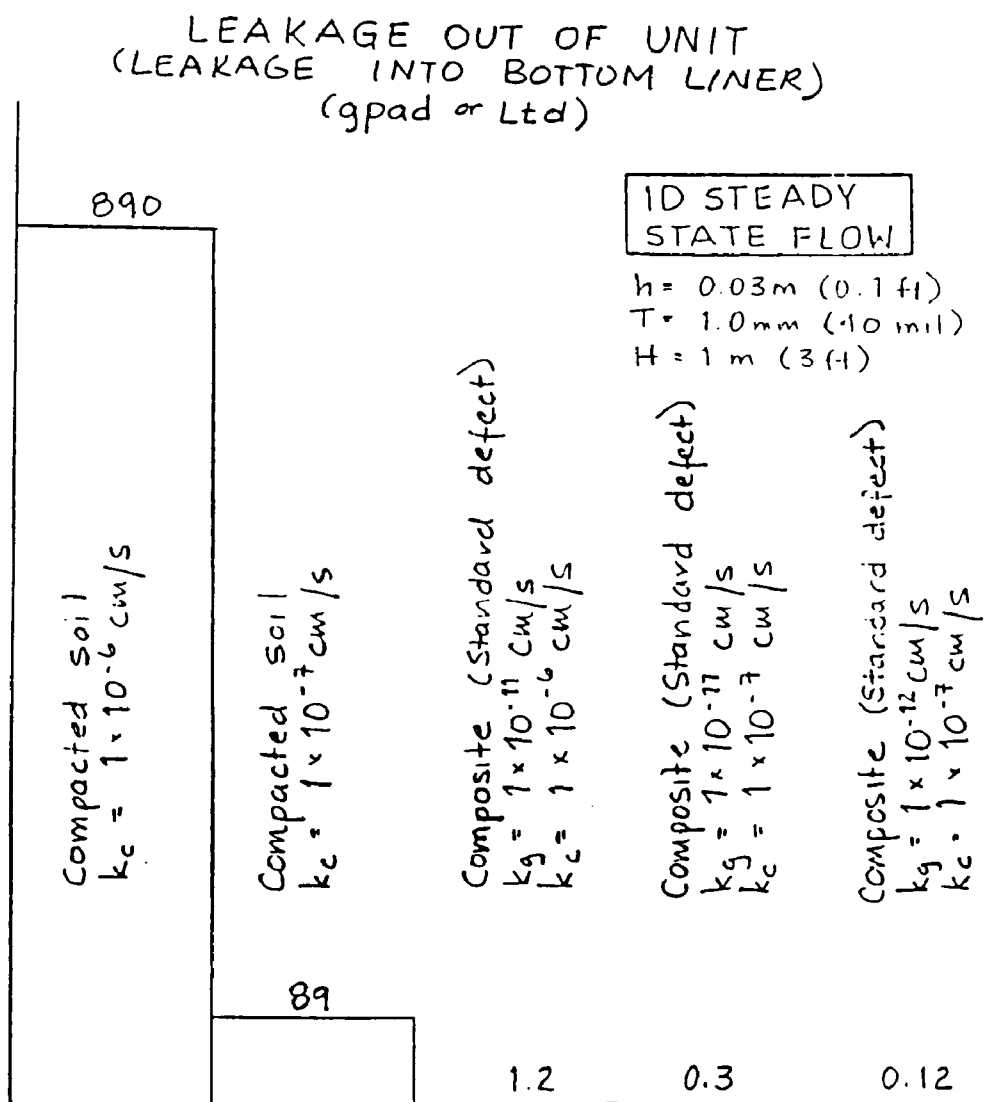 LEAKAGE OUT OF UNIT
(LEAKAGE INTO BOTTOM LINER)
(gpad or Ltd)
890
1D STEADY
STATE FLOW
h = 0.03m (0.1 ft)
T = 1.0mm (40 mil)
H = 1 m (3 ft)
Compacted soil
kc = 1 × 10⁻⁶ cm/s
Compacted soil
kc = 1 × 10⁻⁷ cm/s
Composite (Standard defect)
kg = 1 × 10⁻¹¹ cm/s
kc = 1 × 10⁻⁶ cm/s
Composite (Standard defect)
kg = 1 × 10⁻¹¹ cm/s
kc = 1 × 10⁻⁷ cm/s
Composite (Standard defect)
kg = 1 × 10⁻¹² cm/s
kc = 1 × 10⁻⁷ cm/s
89
1.2 0.3 0.12